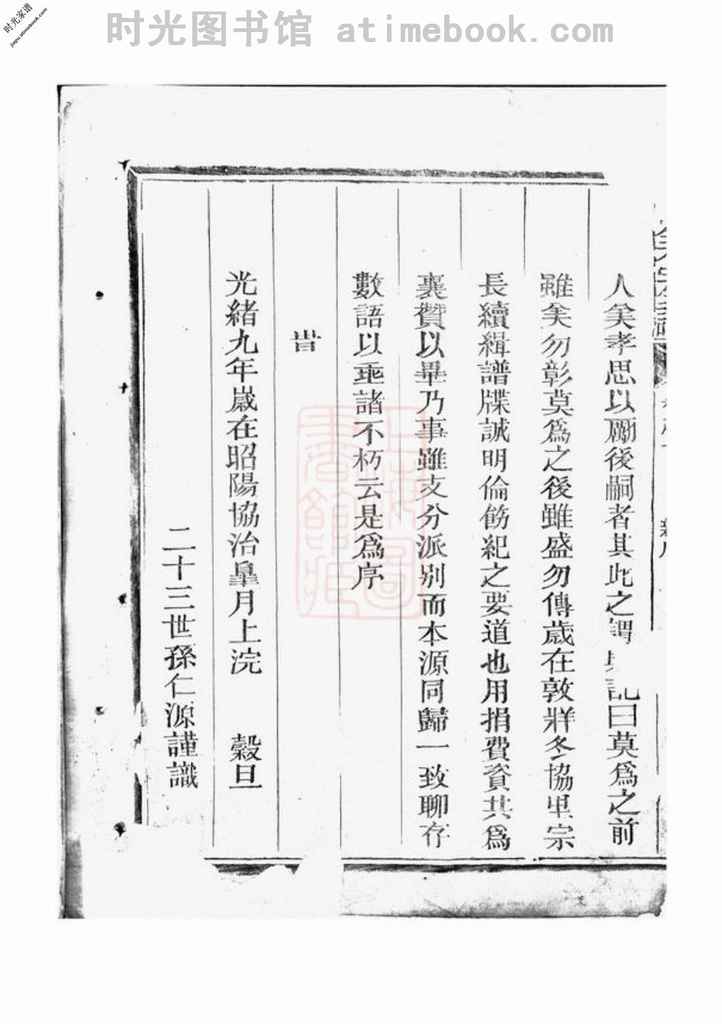 时光图书馆 atimebook.com
时光家谱
jiapu.atimebook.com
人矣孝思以勵後嗣者其此之謂 記曰莫爲之前
雖美勿彰莫爲之後雖盛勿傳歲在敦牂冬協里宗
長續緝譜牒誠明倫飭紀之要道也用捐費貲共爲
襄贊以畢乃事雖支分派别而本源同歸一致聊存
數語以垂諸不朽云是爲序
旹
光緒九年歲在昭陽協洽臯月上浣 穀旦
二十三世孫仁源謹識